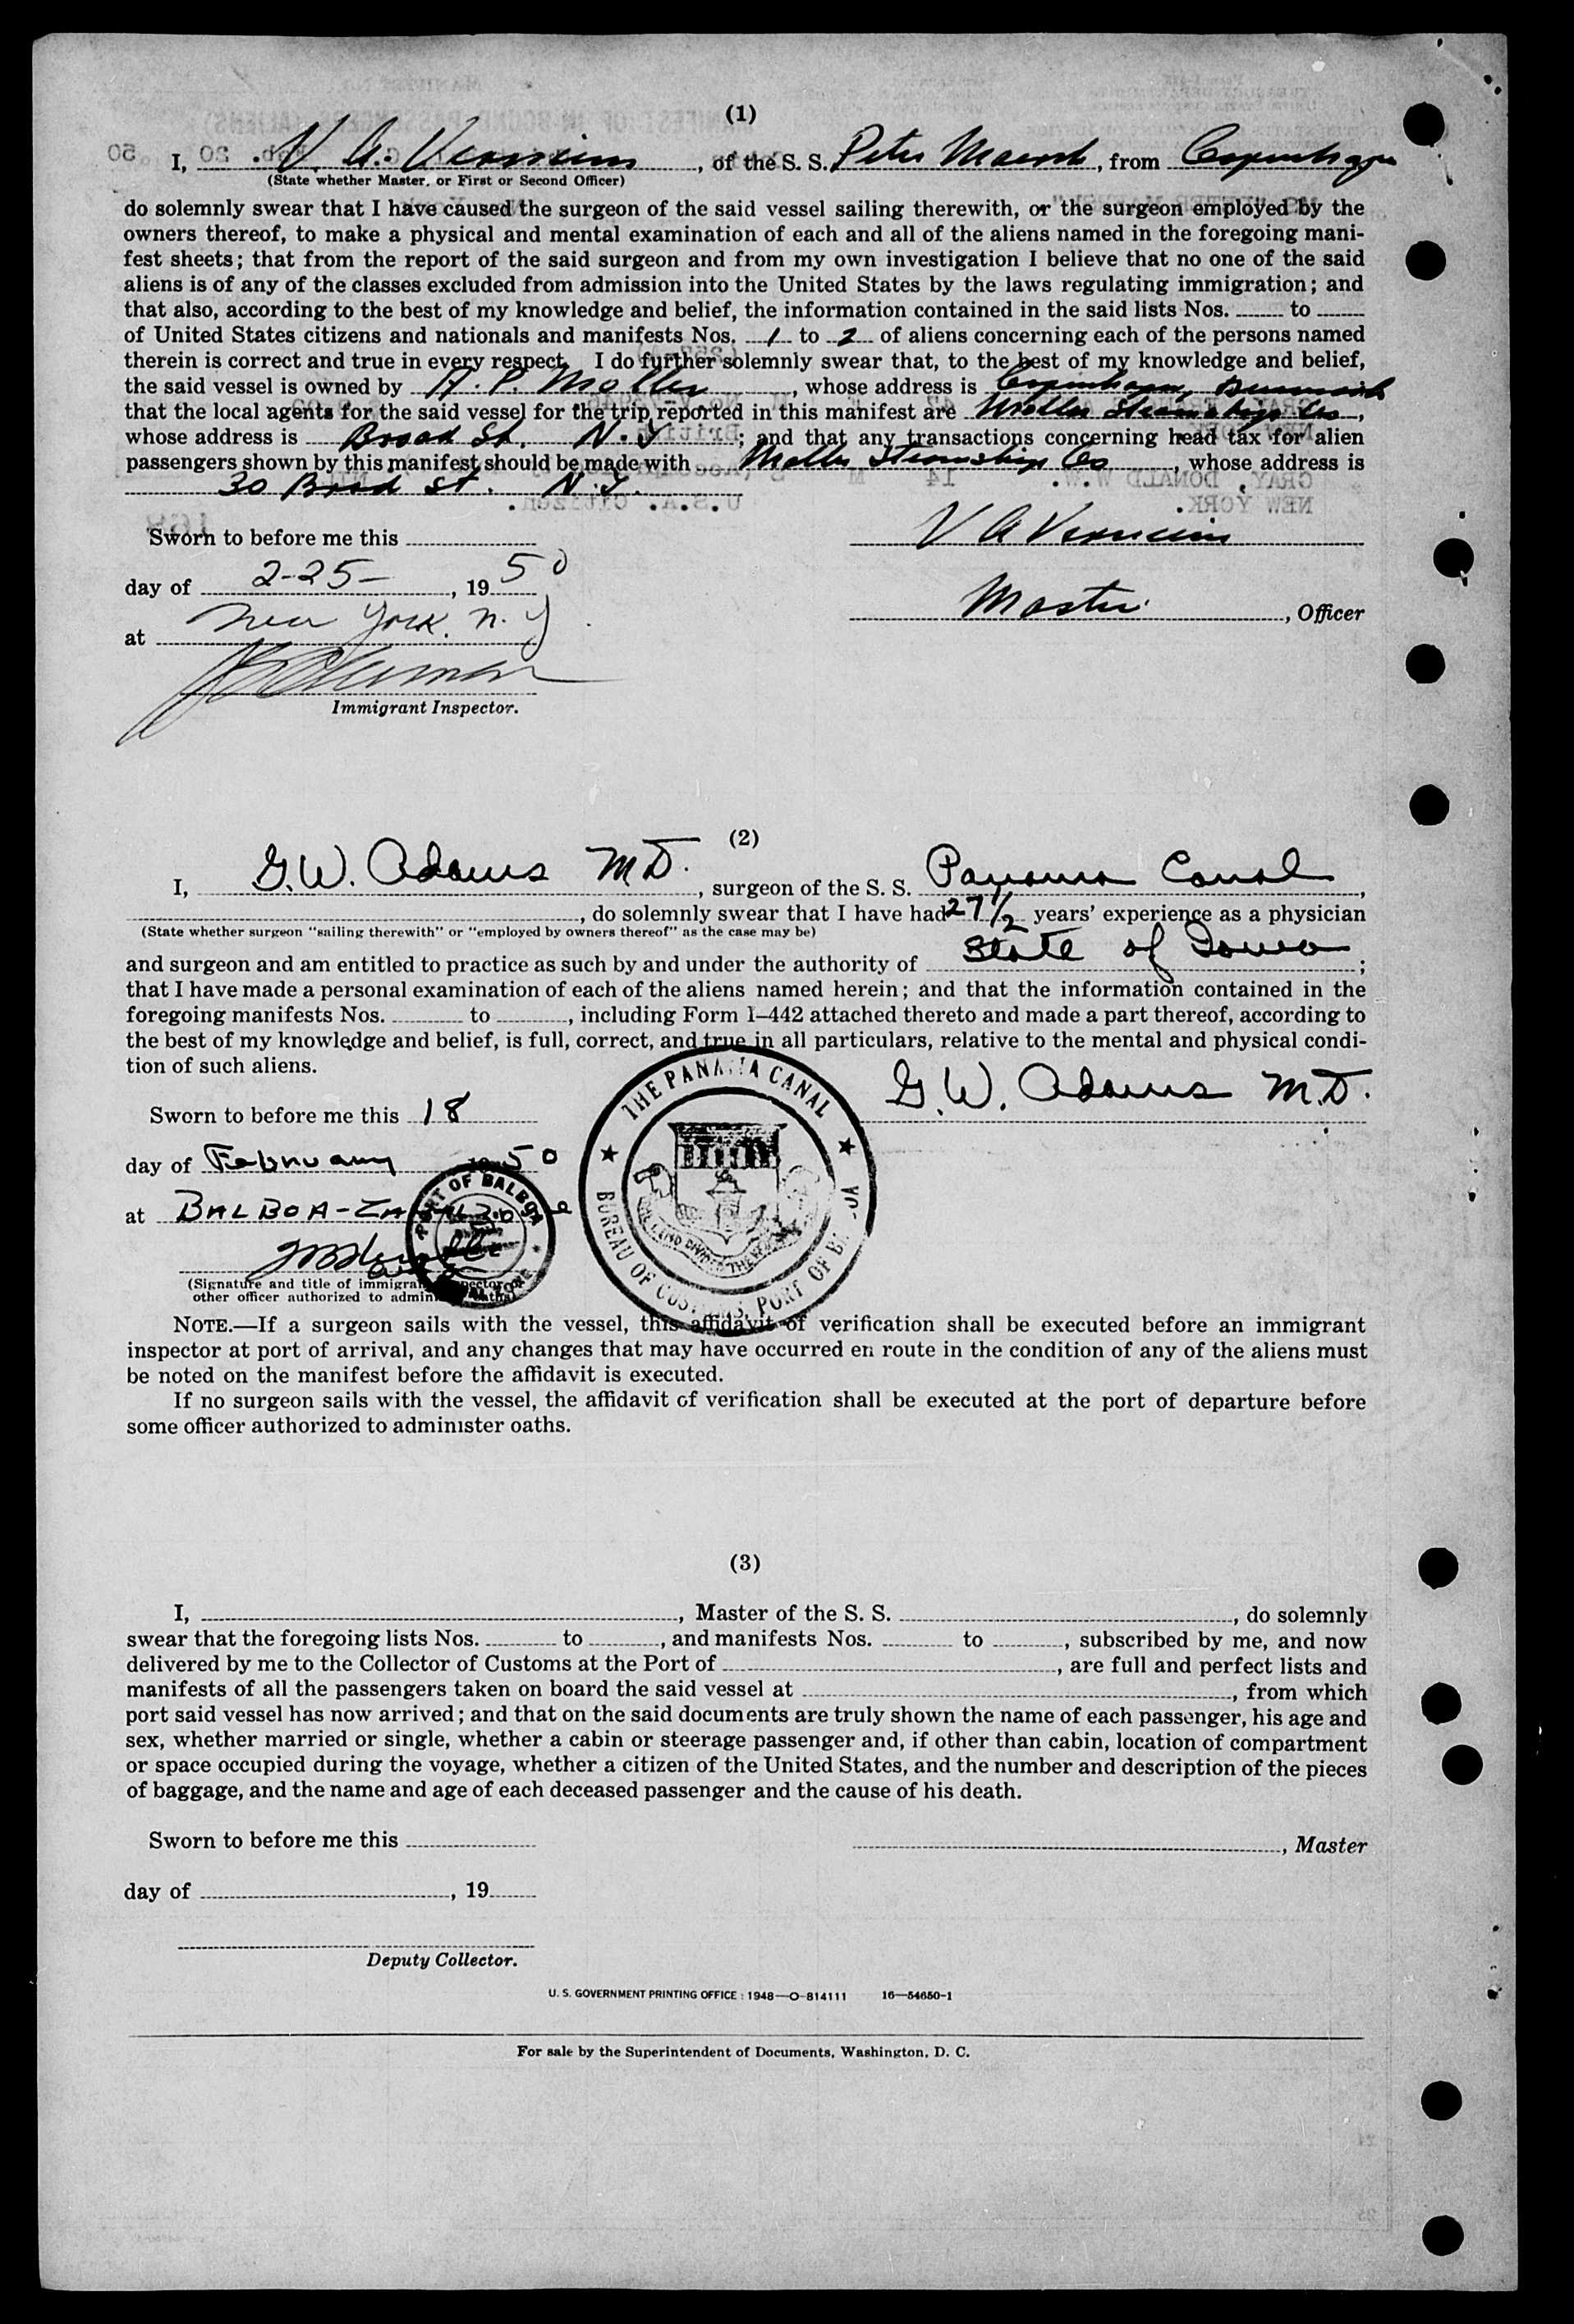 (1)
I, V. A. , of the S. S. Peter Maersk, from Copenhagen
(State whether Master, or First or Second Officer)
do solemnly swear that I have caused the surgeon of the said vessel sailing therewith, or the surgeon employed by the
owners thereof, to make a physical and mental examination of each and all of the aliens named in the foregoing mani-
fest sheets; that from the report of the said surgeon and from my own investigation I believe that no one of the said
aliens is of any of the classes excluded from admission into the United States by the laws regulating immigration; and
that also, according to the best of my knowledge and belief, the information contained in the said lists Nos. to
of United States citizens and nationals and manifests Nos. 1 to 2 of aliens concerning each of the persons named
therein is correct and true in every respect. I do further solemnly swear that, to the best of my knowledge and belief,
the said vessel is owned by A. P. Moller, whose address is Copenhagen, Denmark
that the local agents for the said vessel for the trip reported in this manifest are Moller Steamship Co,
whose address is Broad St. N.Y; and that any transactions concerning head tax for alien
passengers shown by this manifest should be made with Moller Steamship Co, whose address is
30 Broad St. N.Y.
Sworn to before me this
V A
day of 2-25-, 1950
Master, Officer
at New York. N. Y
Immigrant Inspector.
(2)
I, G.W. Adams M.D., surgeon of the S. S. Panama Canal,
, do solemnly swear that I have had 27 1/2 years' experience as a physician
(State whether surgeon "sailing therewith" or "employed by owners thereof" as the case may be)
and surgeon and am entitled to practice as such by and under the authority of State of Iowa;
that I have made a personal examination of each of the aliens named herein; and that the information contained in the
foregoing manifests Nos. to , including Form I-442 attached thereto and made a part thereof, according to
the best of my knowledge and belief, is full, correct, and true in all particulars, relative to the mental and physical condi-
tion of such aliens.
THE PANAMA CANAL
BUREAU OF CUSTOMS, PORT OF
G.W. Adams M.D.
Sworn to before me this 18
day of February 1950
at BALBOA-
PORT OF BALBOA
(Signature and title of immigrant inspector or
other officer authorized to administer oaths)
NOTE.—If a surgeon sails with the vessel, this affidavit of verification shall be executed before an immigrant
inspector at port of arrival, and any changes that may have occurred en route in the condition of any of the aliens must
be noted on the manifest before the affidavit is executed.
If no surgeon sails with the vessel, the affidavit of verification shall be executed at the port of departure before
some officer authorized to administer oaths.
(3)
I, , Master of the S. S. , do solemnly
swear that the foregoing lists Nos. to , and manifests Nos. to , subscribed by me, and now
delivered by me to the Collector of Customs at the Port of , are full and perfect lists and
manifests of all the passengers taken on board the said vessel at , from which
port said vessel has now arrived; and that on the said documents are truly shown the name of each passenger, his age and
sex, whether married or single, whether a cabin or steerage passenger and, if other than cabin, location of compartment
or space occupied during the voyage, whether a citizen of the United States, and the number and description of the pieces
of baggage, and the name and age of each deceased passenger and the cause of his death.
Sworn to before me this
, Master
day of , 19
Deputy Collector.
U. S. GOVERNMENT PRINTING OFFICE : 1948—O-814111 16—54650-1
For sale by the Superintendent of Documents, Washington, D. C.